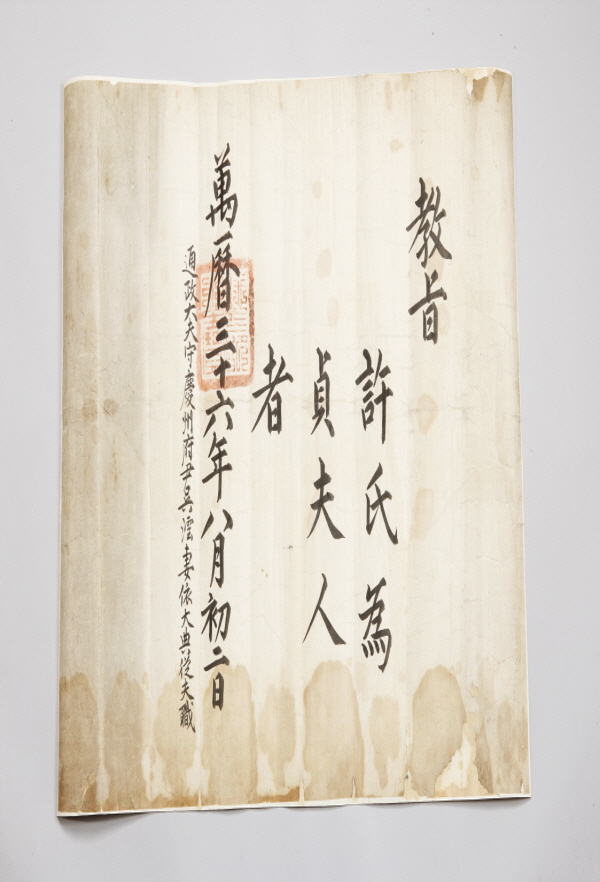 教旨
許氏為
貞夫人
者
萬曆三十六年八月初二日
通政大夫守慶州府尹吳澐妻依大典從夫職